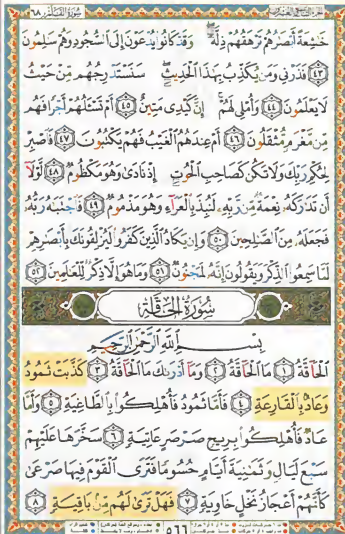 خَٰشِعَةً أَبْصَٰرُهُمْ تَرْهَقُهُمْ ذِلَّةٌ ۖ وَقَدْ كَانُوا۟ يُدْعَوْنَ إِلَى ٱلسُّجُودِ وَهُمْ سَٰلِمُونَ
٤٣ فَذَرْنِى وَمَن يُكَذِّبُ بِهَٰذَا ٱلْحَدِيثِ ۖ سَنَسْتَدْرِجُهُم مِّنْ حَيْثُ
لَا يَعْلَمُونَ ٤٤ وَأُمْلِى لَهُمْ ۚ إِنَّ كَيْدِى مَتِينٌ ٤٥ أَمْ تَسْـَٔلُهُمْ أَجْرًا فَهُم
مِّن مَّغْرَمٍ مُّثْقَلُونَ ٤٦ أَمْ عِندَهُمُ ٱلْغَيْبُ فَهُمْ يَكْتُبُونَ ٤٧ فَٱصْبِرْ
لِحُكْمِ رَبِّكَ وَلَا تَكُن كَصَاحِبِ ٱلْحُوتِ إِذْ نَادَىٰ وَهُوَ مَكْظُومٌ ٤٨ لَّوْلَآ
أَن تَدَٰرَكَهُۥ نِعْمَةٌ مِّن رَّبِّهِۦ لَنُبِذَ بِٱلْعَرَآءِ وَهُوَ مَذْمُومٌ ٤٩ فَٱجْتَبَٰهُ رَبُّهُۥ
فَجَعَلَهُۥ مِنَ ٱلصَّٰلِحِينَ ٥٠ وَإِن يَكَادُ ٱلَّذِينَ كَفَرُوا۟ لَيُزْلِقُونَكَ بِأَبْصَٰرِهِمْ
لَمَّا سَمِعُوا۟ ٱلذِّكْرَ وَيَقُولُونَ إِنَّهُۥ لَمَجْنُونٌ ٥١ وَمَا هُوَ إِلَّا ذِكْرٌ لِّلْعَٰلَمِينَ ٥٢
سُورَةُ الحَاقَّةِ
بِسْمِ ٱللَّهِ ٱلرَّحْمَٰنِ ٱلرَّحِيمِ
ٱلْحَآقَّةُ ١ مَا ٱلْحَآقَّةُ ٢ وَمَآ أَدْرَىٰكَ مَا ٱلْحَآقَّةُ ٣ كَذَّبَتْ ثَمُودُ
وَعَادٌۢ بِٱلْقَارِعَةِ ٤ فَأَمَّا ثَمُودُ فَأُهْلِكُوا۟ بِٱلطَّاغِيَةِ ٥ وَأَمَّا
عَادٌ فَأُهْلِكُوا۟ بِرِيحٍ صَرْصَرٍ عَاتِيَةٍ ٦ سَخَّرَهَا عَلَيْهِمْ
سَبْعَ لَيَالٍ وَثَمَٰنِيَةَ أَيَّامٍ حُسُومًا فَتَرَى ٱلْقَوْمَ فِيهَا صَرْعَىٰ
كَأَنَّهُمْ أَعْجَازُ نَخْلٍ خَاوِيَةٍ ٧ فَهَلْ تَرَىٰ لَهُم مِّنۢ بَاقِيَةٍ ٨
٥٦٦